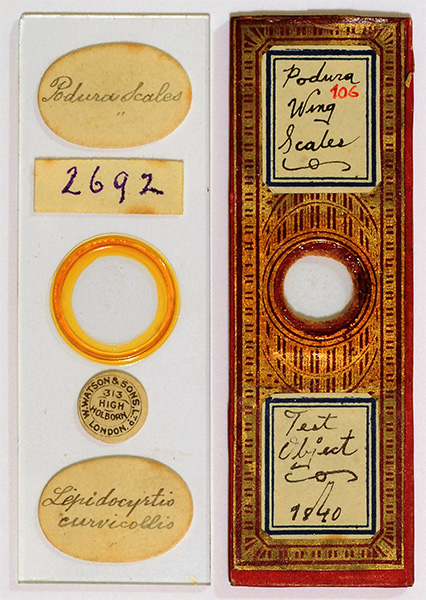 Podura Scales
"
2692
W. WATSON & SONS. LTD.
313
HIGH
HOLBORN
LONDON.
Lepidocyrtis
curvicollis
Podura
106
Wing
Scales
Test
Object
1840